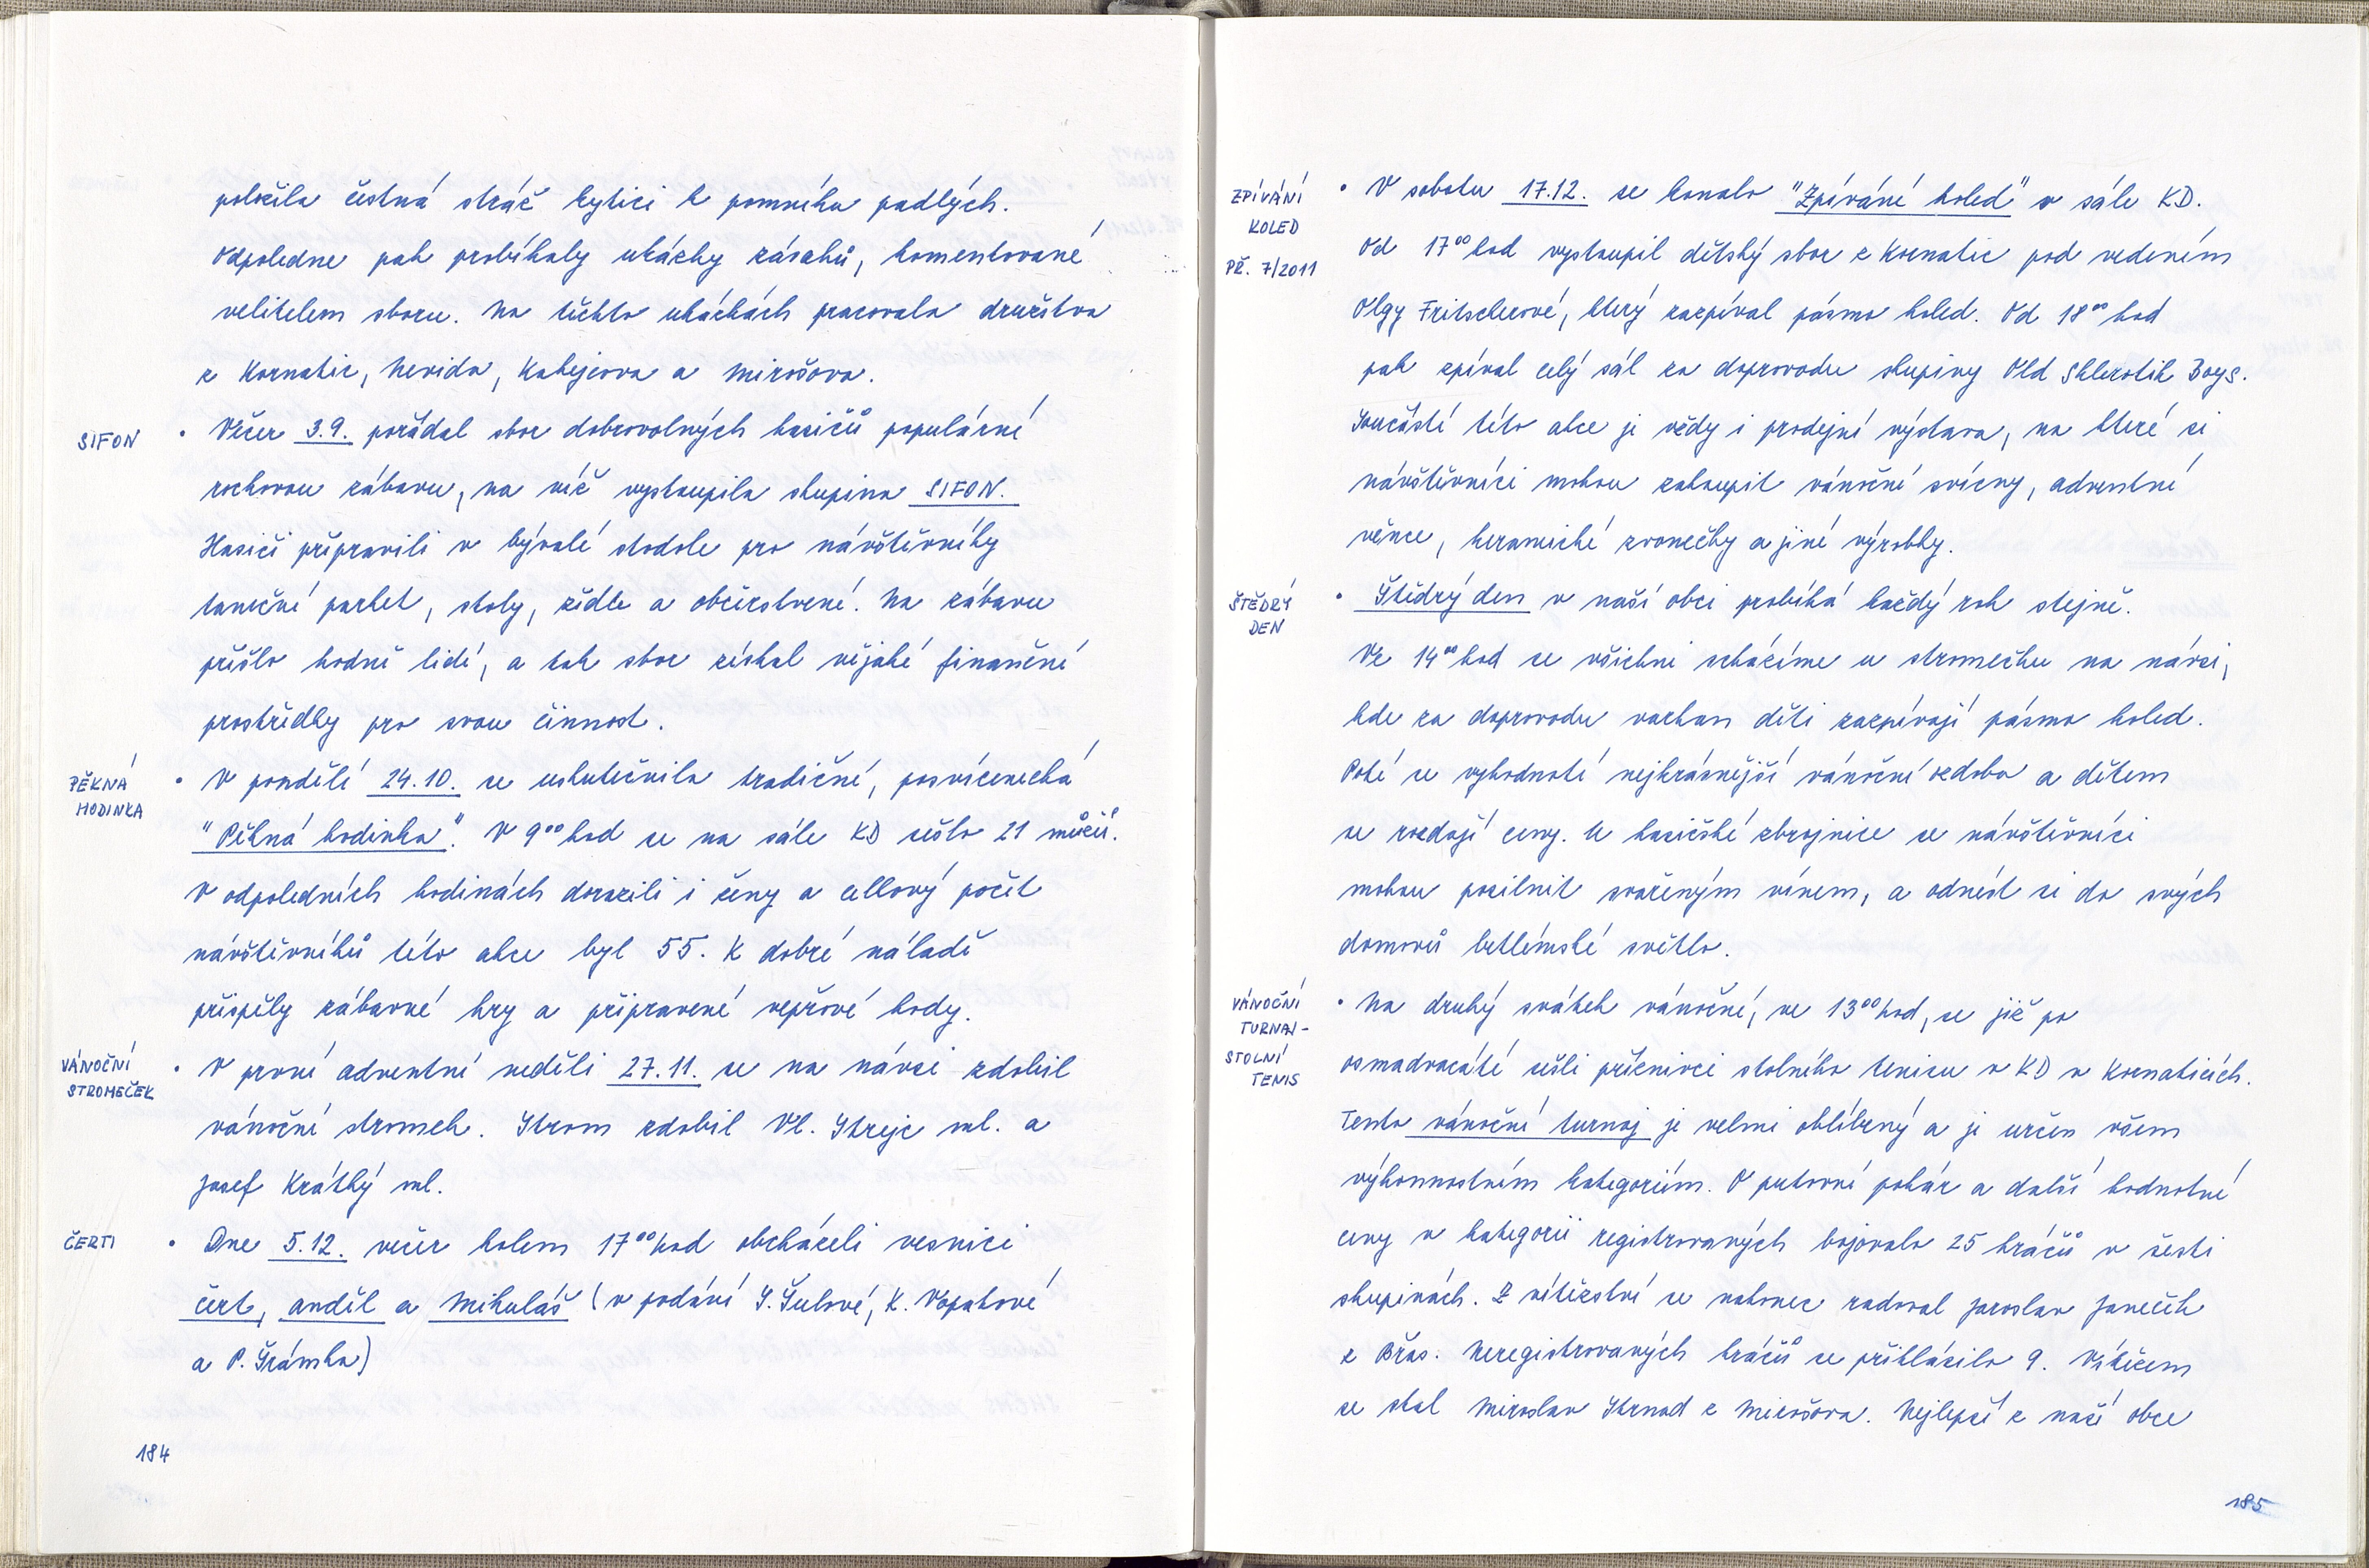 položila čestná stráž kytici k pomníku padlých.
Odpoledne pak probíhaly ukázky zásahů, komentované
velitelem sboru. Na těchto ukázkách pracovala družstva
z Kornatic, Nevida, Kakejcova a Mirošova.
SIFON
• Večer 3.9. pořádal sbor dobrovolných hasičů populární
rockovou zábavu, na níž vystoupila skupina SIFON.
Hasiči připravili v bývalé stodole pro návštěvníky
taneční parket, stoly, židle a občerstvení. Na zábavu
přišlo hodně lidí, a tak sbor získal nějaké finanční
prostředky pro svou činnost.
PĚKNÁ
HODINKA
• V pondělí 24.10. se uskutečnila tradiční, posvícenecká
"Pěkná hodinka". V 9⁰⁰ hod se na sále KD sešlo 21 mužů.
V odpoledních hodinách dorazili i ženy a celkový počet
návštěvníků této akce byl 55. K dobré náladě
přispěly zábavné hry a připravené vepřové hody.
VÁNOČNÍ
STROMEČEK
• V první adventní neděli 27.11. se na návsi zdobil
vánoční stromek. Strom zdobil Vl. Strejc ml. a
Josef Krátký ml.
ČERTI
• Dne 5.12. večer kolem 17⁰⁰ hod obcházeli vesnici
čert, anděl a Mikuláš (v podání Š. Šulové, K. Vopatové
a P. Šrámka)
184
ZPÍVÁNÍ
KOLED
PŘ. 7/2011
• V sobotu 17.12. se konalo "Zpívání koled" v sále KD.
Od 17⁰⁰ hod vystoupil dětský sbor z Kornatic pod vedením
Olgy Fritscherové, který zazpíval pásmo koled. Od 18⁰⁰ hod
pak zpíval celý sál za doprovodu skupiny Old Sklerotik Boys.
Součástí této akce je vždy i prodejní výstava, na které si
návštěvníci mohou zakoupit vánoční svícny, adventní
věnce, keramické zvonečky a jiné výrobky.
ŠTĚDRÝ
DEN
• Štědrý den v naší obci probíhá každý rok stejně.
Ve 14⁰⁰ hod se všichni scházíme u stromečku na návsi,
kde za doprovodu varhan děti zazpívají pásmo koled.
Poté se vyhodnotí nejkrásnější vánoční ozdoba a dětem
se rozdají ceny. U hasičské zbrojnice se návštěvníci
mohou posilnit svařeným vínem, a odnést si do svých
domovů betlémské světlo.
VÁNOČNÍ
TURNAJ -
STOLNÍ
TENIS
• Na druhý svátek vánoční, ve 13⁰⁰ hod, se již po
osmadvacáté sešli příznivci stolního tenisu v KD v Kornaticích.
Tento vánoční turnaj je velmi oblíbený a je určen všem
výkonnostním kategoriím. O putovní pohár a další hodnotné
ceny v kategorii registrovaných bojovalo 25 hráčů v šesti
skupinách. Z vítězství se nakonec radoval Jaroslav Janeček
z Břas. Neregistrovaných hráčů se přihlásilo 9. Vítězem
se stal Miroslav Strnad z Mirošova. Nejlepší z naší obce
185